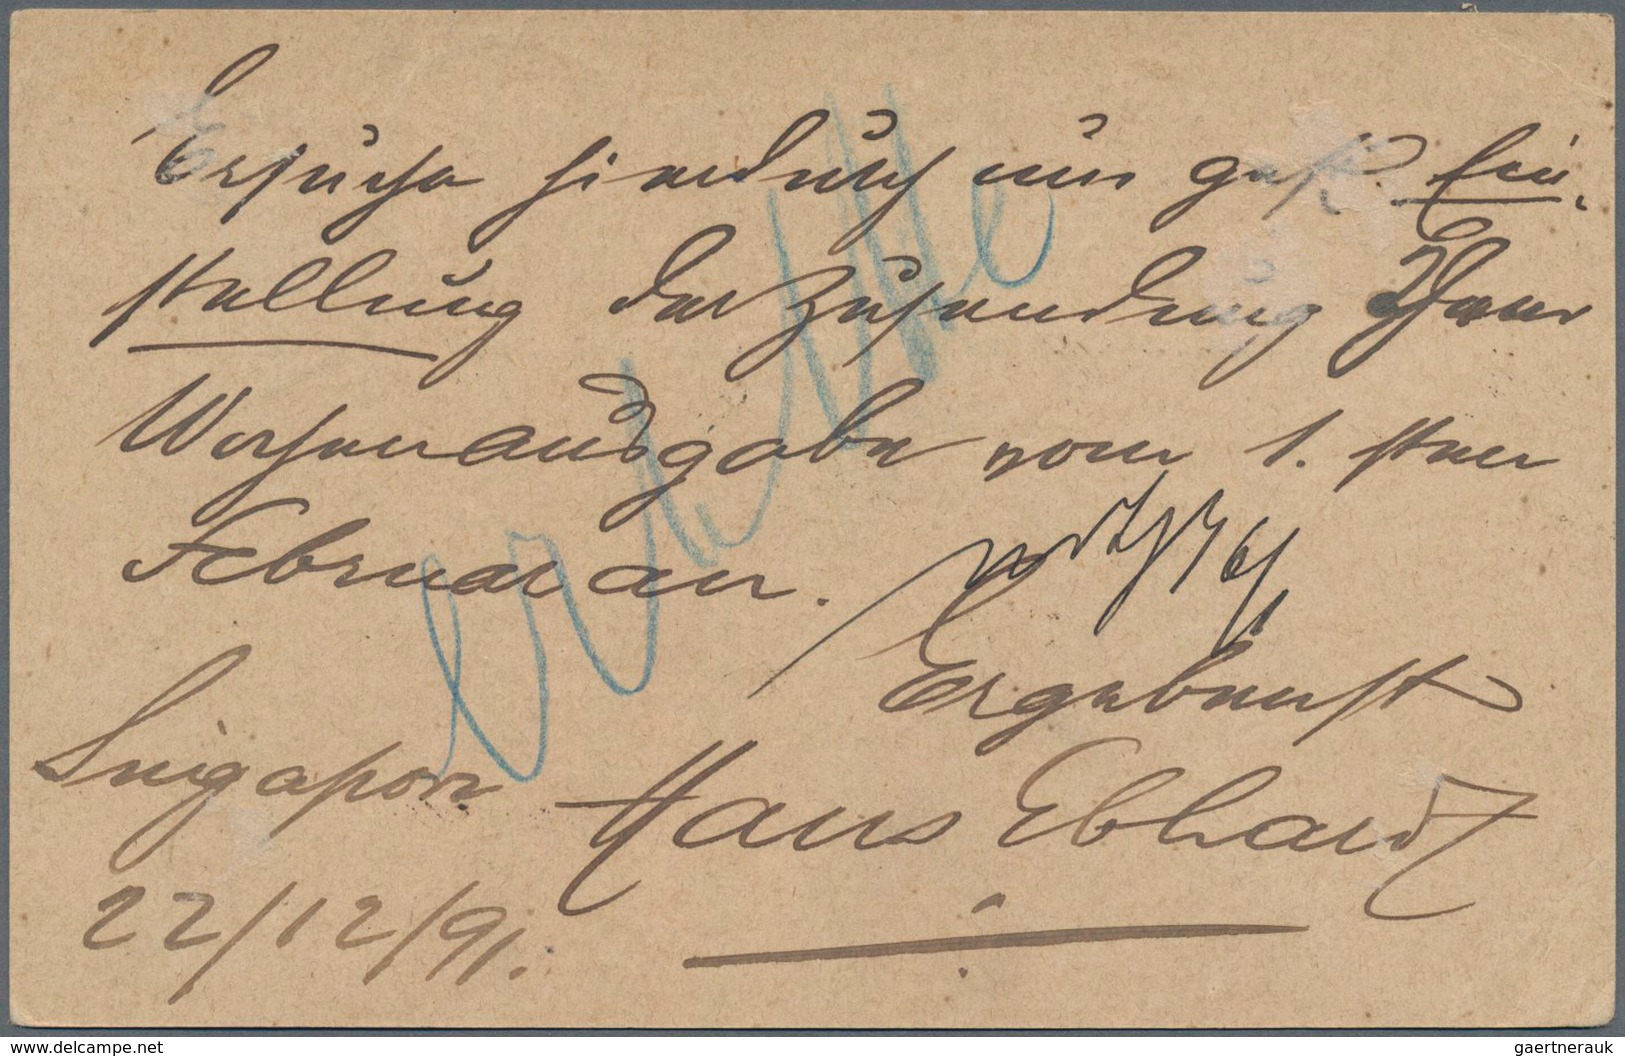 Ersuche hierdurch um gefl. Ein-
stellung der Zusendung Ihrer
Wochenausgabe vom 1. sten
Februar an.
Ergebenst
Singapore Hans Ebhardt
22/12/91.
www.delcampe.net
gaertnerauk